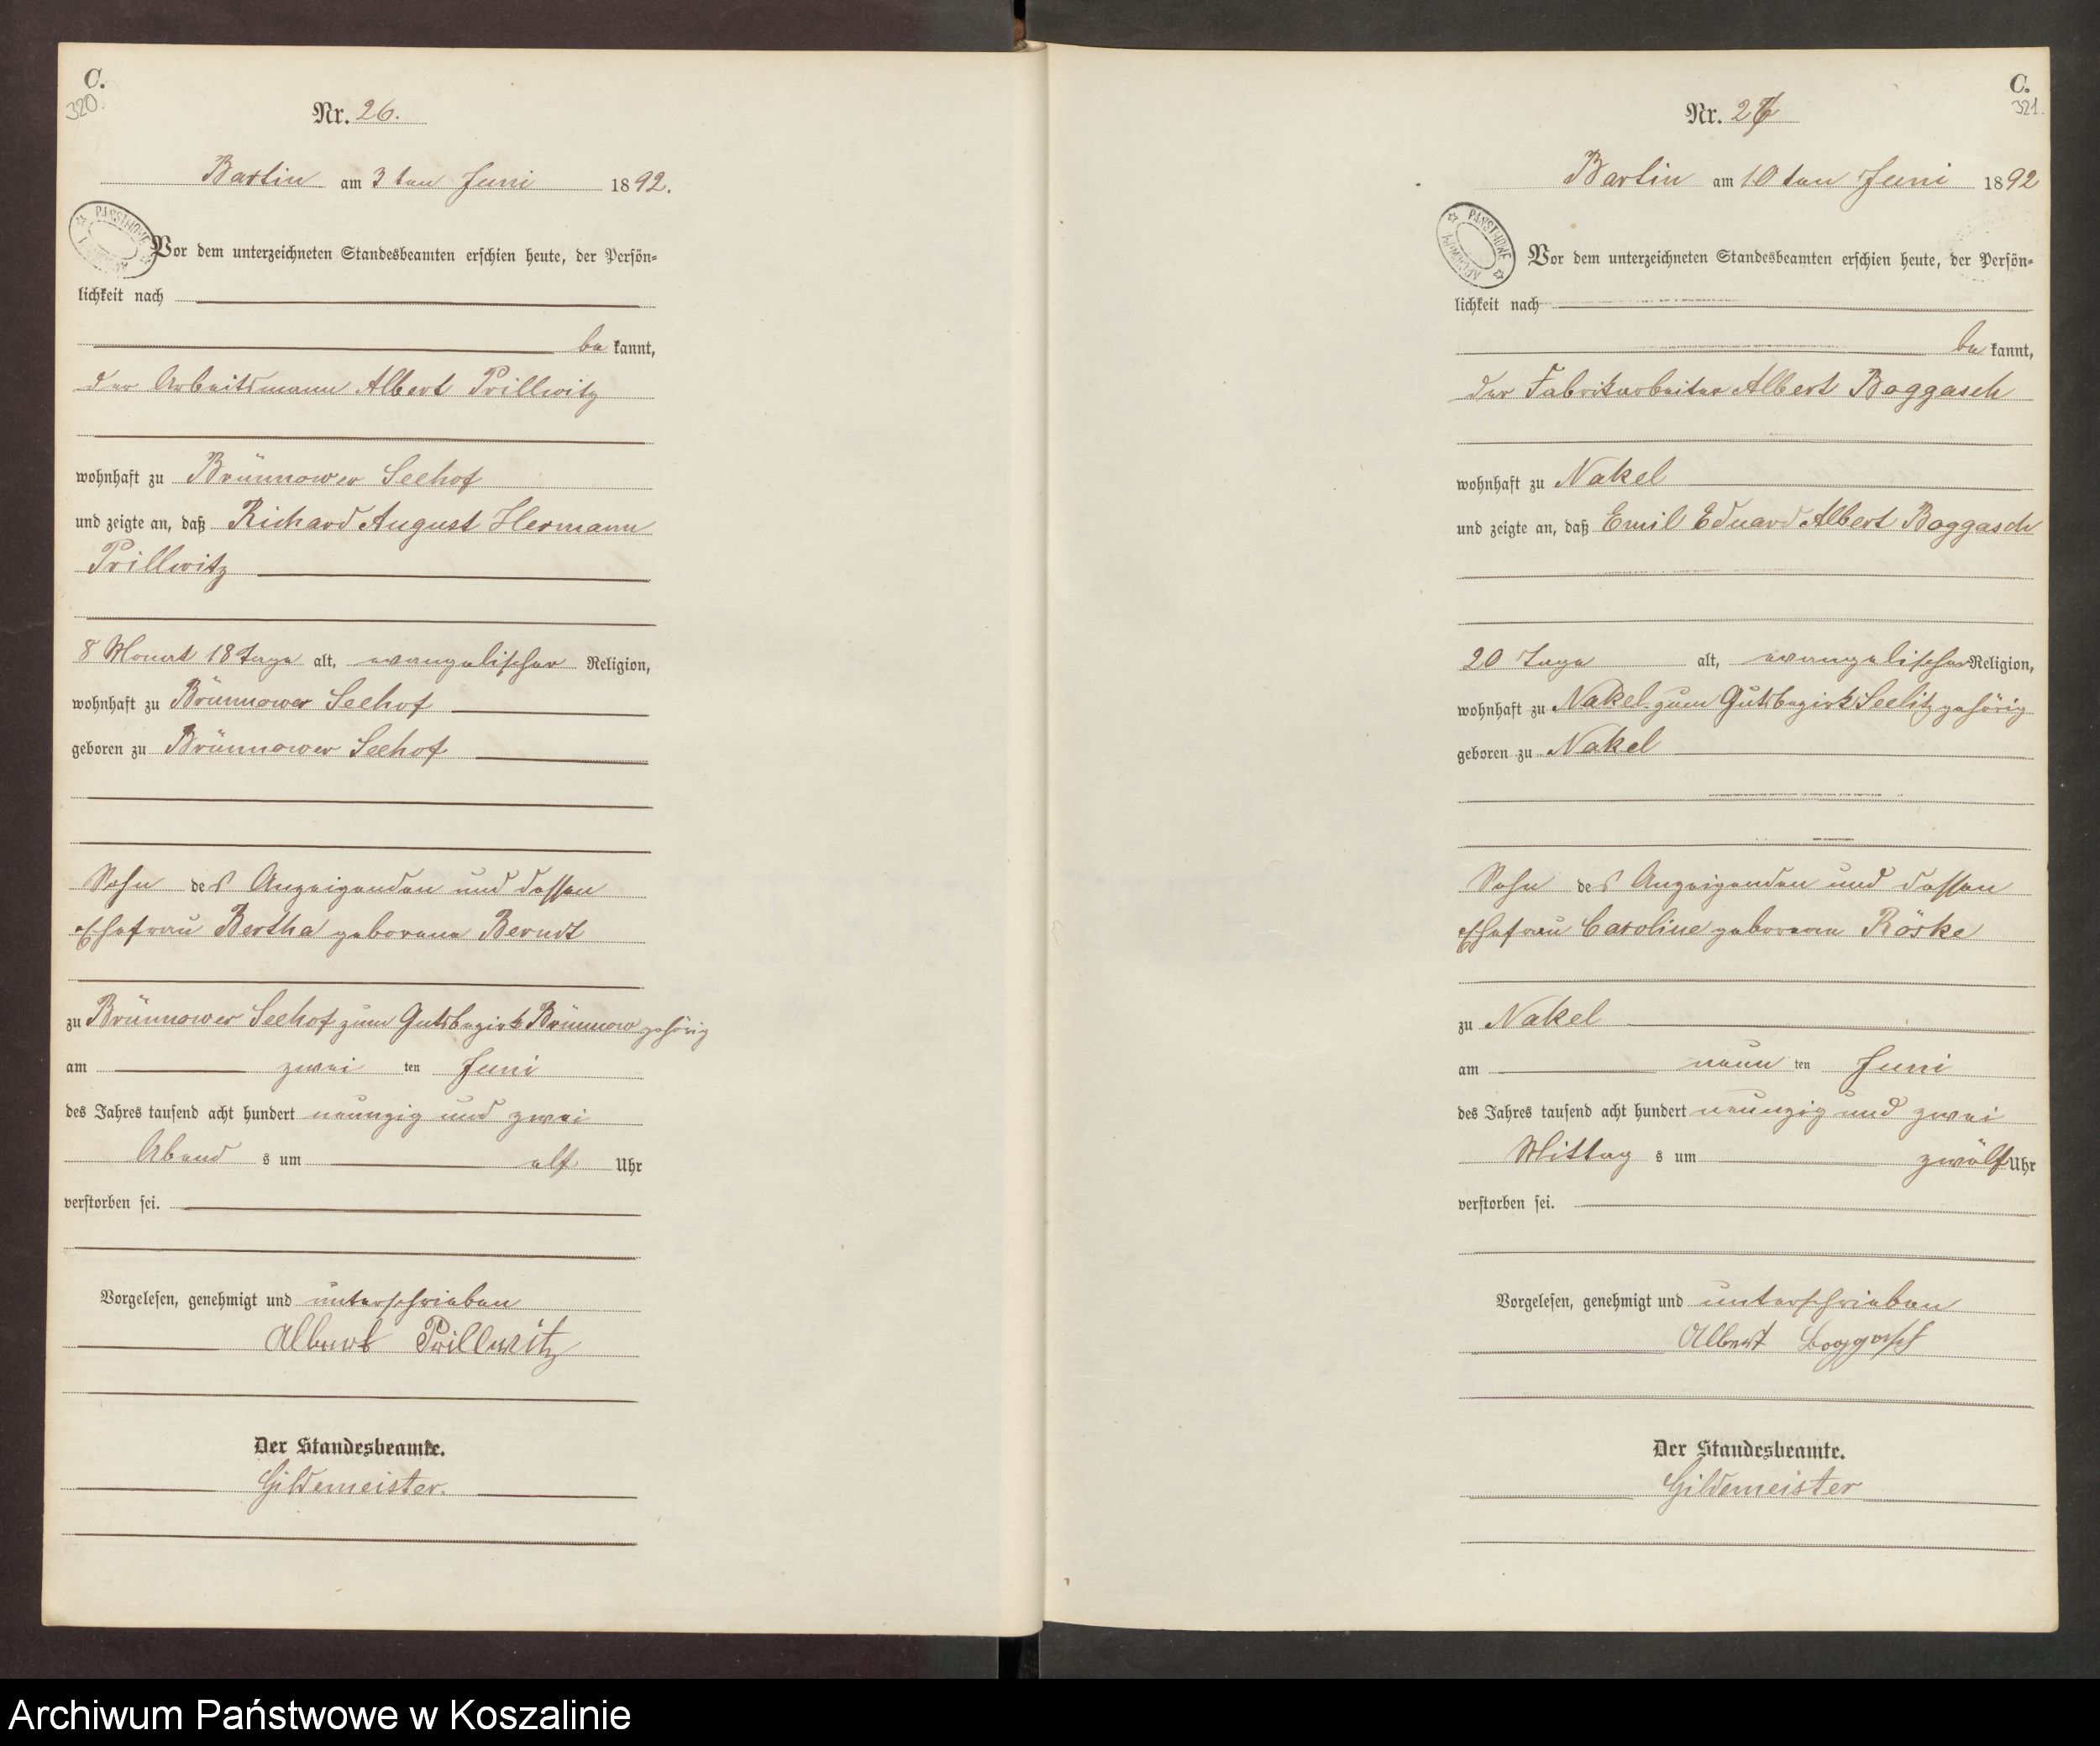 C.
320.
Nr. 26.
Bartin am 3 ten Juni 1892.
PAŃSTWOWE ARCHIWUM
Vor dem unterzeichneten Standesbeamten erschien heute, der Persön=
lichkeit nach
be kannt,
der Arbeitsmann Albert Prillwitz
wohnhaft zu Brünnower Seehof
und zeigte an, daß Richard August Hermann
Prillwitz
8 Monat 18 Tage alt, evangelischer Religion,
wohnhaft zu Brünnower Seehof
geboren zu Brünnower Seehof
Sohn des Anzeigenden und dessen
Ehefrau Bertha geborene Berndt
zu Brünnower Seehof zum Gutsbezirk Brünnow gehörig
am zwei ten Juni
des Jahres tausend acht hundert neunzig und zwei
Abend s um elf Uhr
verstorben sei.
Vorgelesen, genehmigt und unterschrieben
Albert Prillwitz
Der Standesbeamte.
Gildemeister.
C.
321.
Nr. 27
Bartin am 10 ten Juni 1892
PAŃSTWOWE ARCHIWUM
Vor dem unterzeichneten Standesbeamten erschien heute, der Persön=
lichkeit nach
be kannt,
der Fabrikarbeiter Albert Boggasch
wohnhaft zu Nakel
und zeigte an, daß Emil Eduard Albert Boggasch
20 Tage alt, evangelischer Religion,
wohnhaft zu Nakel zum Gutsbezirk Seelitz gehörig
geboren zu Nakel
Sohn des Anzeigenden und dessen
Ehefrau Caroline geborene Röske
zu Nakel
am neun ten Juni
des Jahres tausend acht hundert neunzig und zwei
Mittag s um zwölf Uhr
verstorben sei.
Vorgelesen, genehmigt und unterschrieben
Albert Boggasch
Der Standesbeamte.
Gildemeister
Archiwum Państwowe w Koszalinie